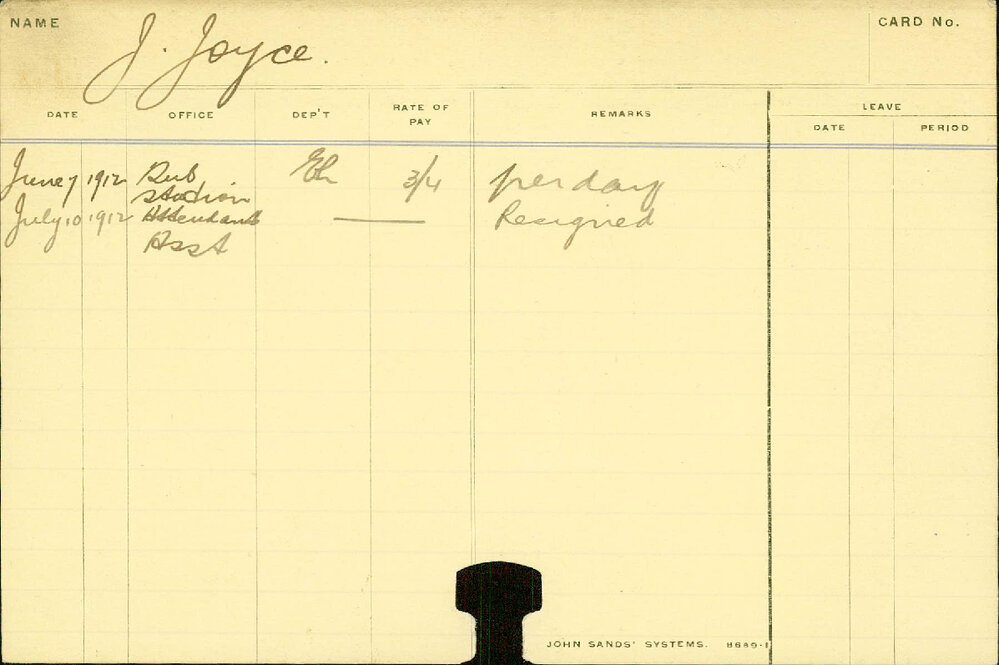 NAME J. Joyce. CARD No.
DATE OFFICE DEP'T RATE OF PAY REMARKS LEAVE
DATE PERIOD
June 7 1912 Sub El 3/4 per day
Station
July 10 1912 Attendant — Resigned
Asst
JOHN SANDS' SYSTEMS. 8689-1